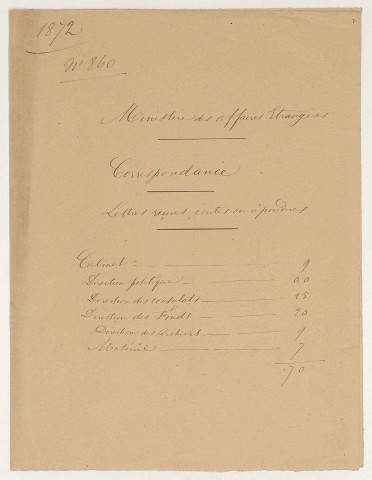 1872
N° 860
Ministère des affaires Etrangères
Correspondance
Lettres reçues, écrites ou répondues
Cabinet 9
Direction politique 00
Direction des consulats 25
Direction des Fonds 20
Direction des Archives 9
Matériel 7
70